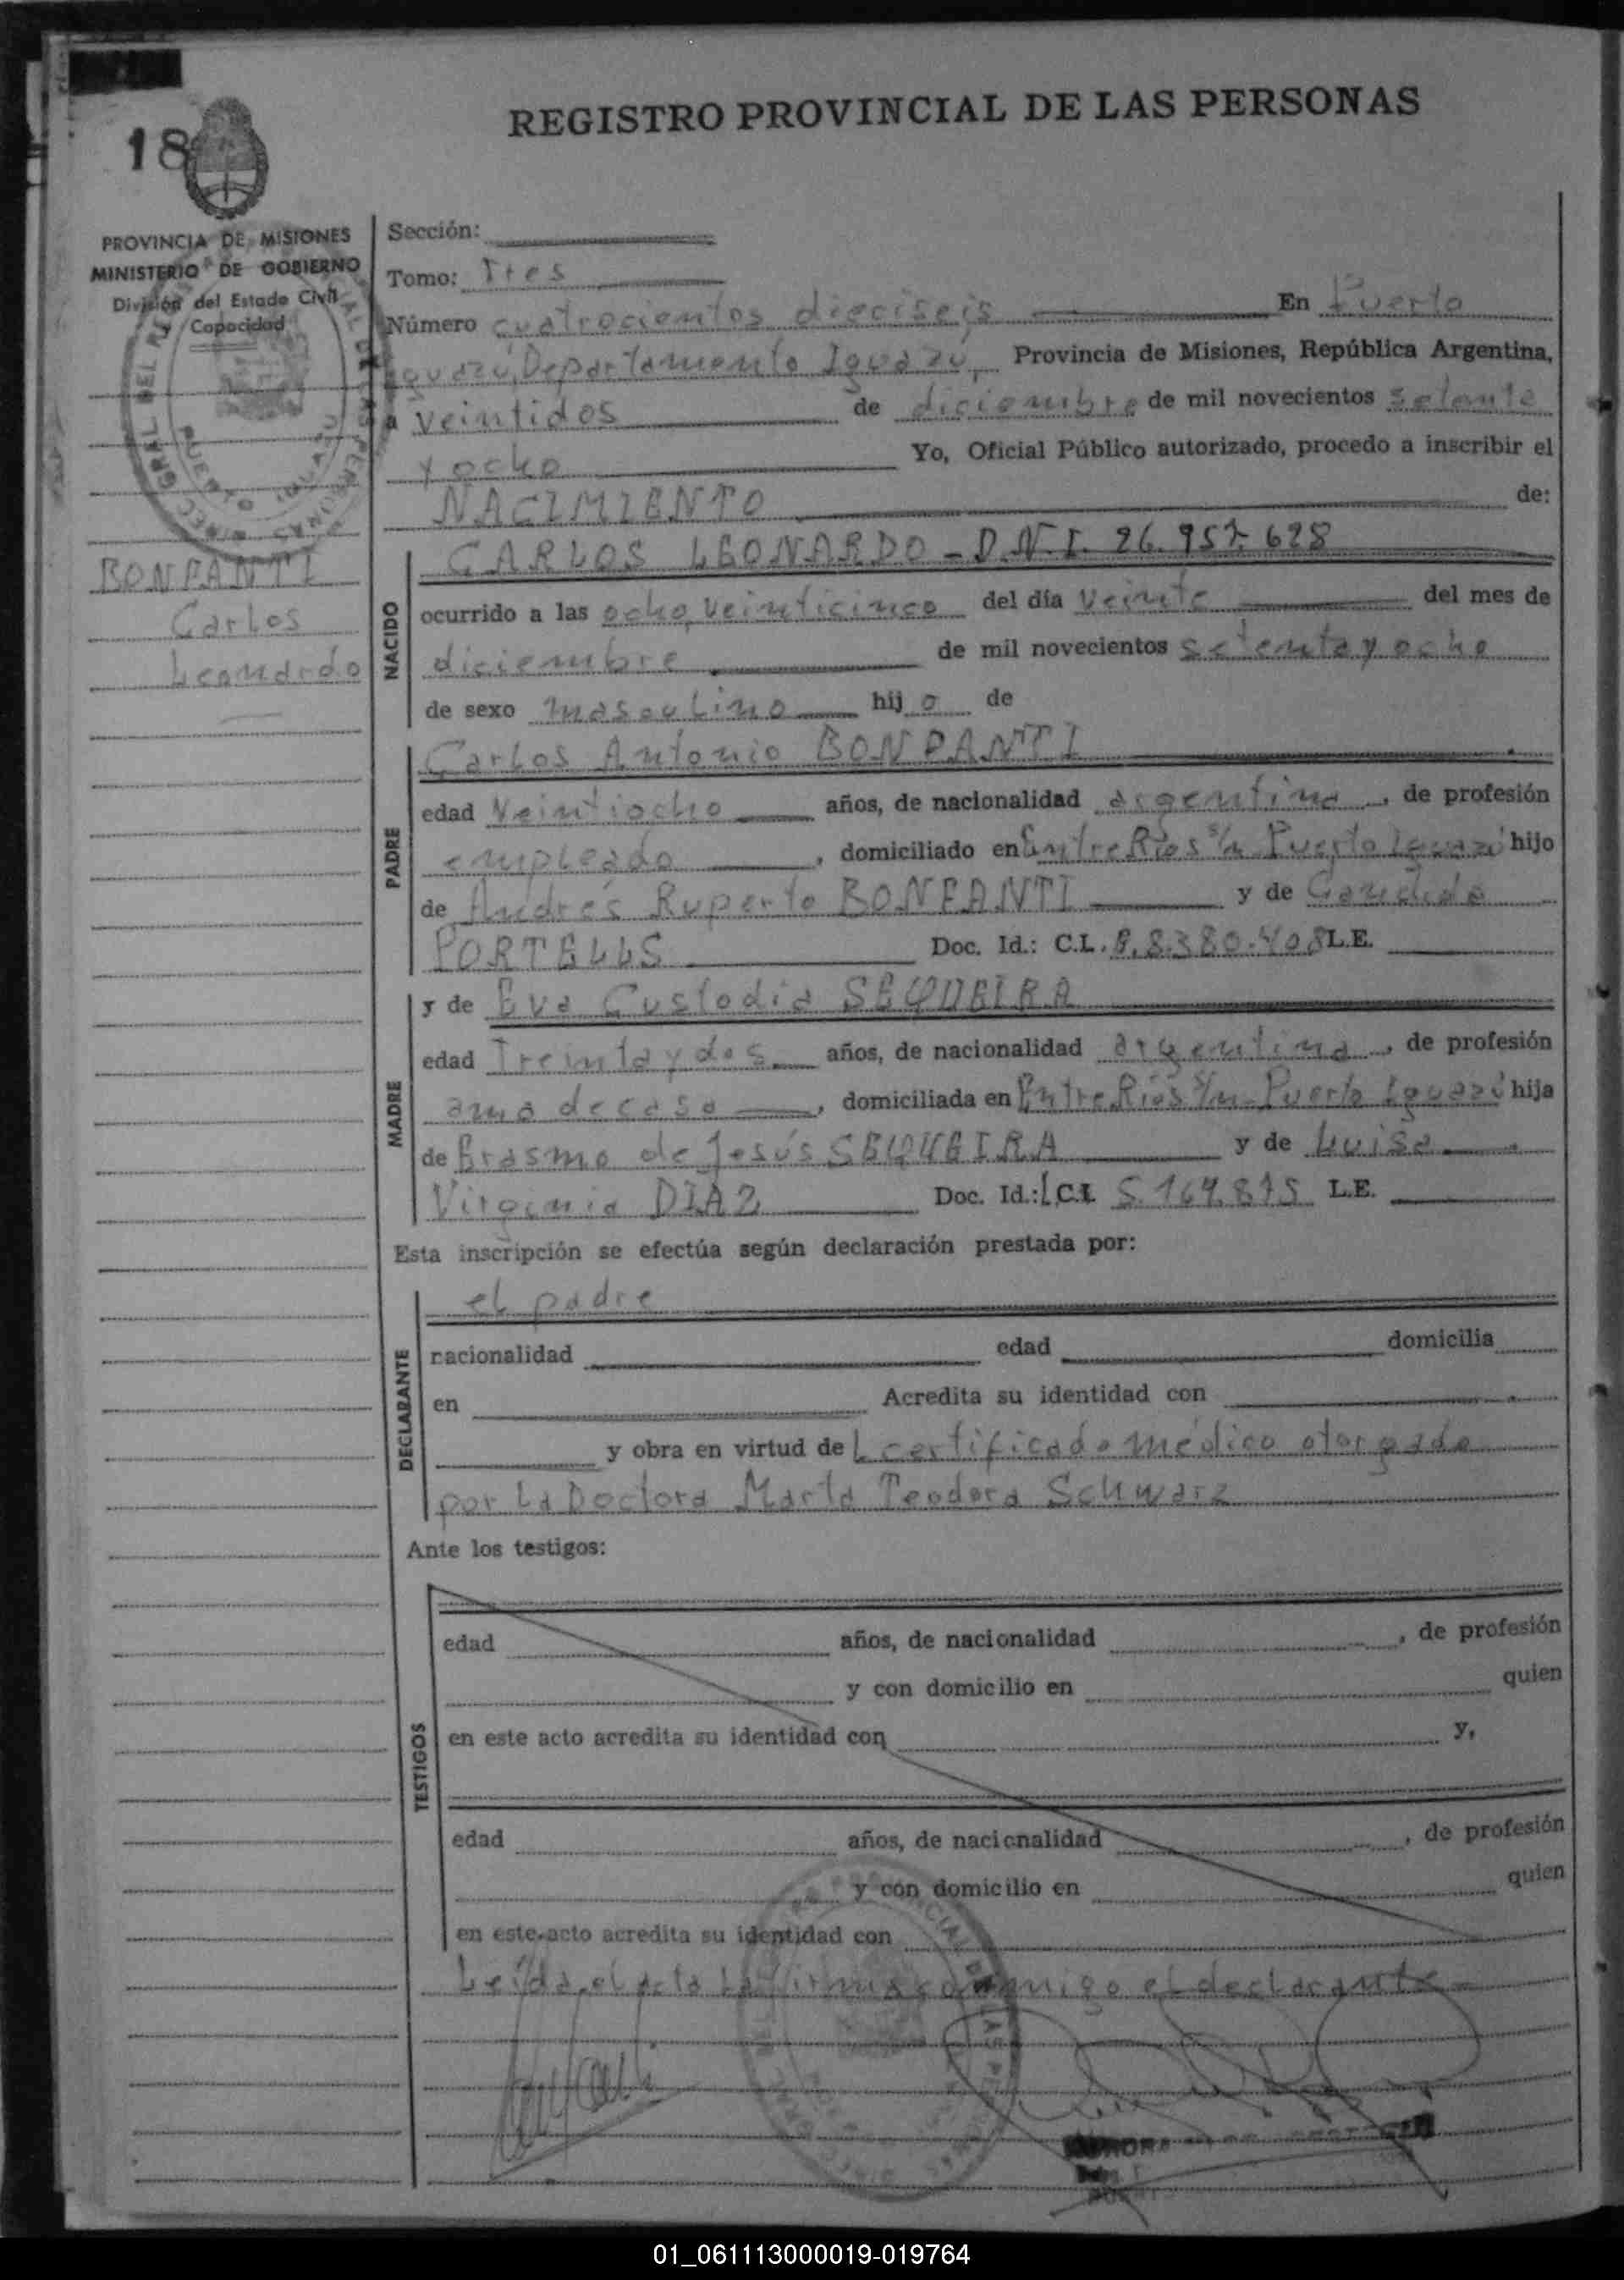 REGISTRO PROVINCIAL DE LAS PERSONAS
18
PROVINCIA DE MISIONES
MINISTERIO DE GOBIERNO
División del Estado Civil
y Capacidad
BONFANTI
Carlos
Leonardo
Sección:
Tomo: Tres
Número cuatrocientos dieciseis En Puerto
Iguazú, Departamento Iguazú, Provincia de Misiones, República Argentina,
a veintidos de diciembre de mil novecientos setenta
y ocho Yo, Oficial Público autorizado, procedo a inscribir el
NACIMIENTO de:
NACIDO
CARLOS LEONARDO - D.N.I. 26.957.628
ocurrido a las ocho, veinticinco del día veinte del mes de
diciembre de mil novecientos setenta y ocho
de sexo masculino hijo de
PADRE
Carlos Antonio BONFANTI
edad Veintiocho años, de nacionalidad argentina, de profesión
empleado, domiciliado en Entre Ríos s/n Puerto Iguazú hijo
de Andrés Ruperto BONFANTI y de Candida
PORTELLS Doc. Id.: C.I. 8.380.408 L.E.
MADRE
y de Eva Custodia SEQUEIRA
edad Treinta y dos años, de nacionalidad argentina, de profesión
ama de casa, domiciliada en Entre Ríos s/n - Puerto Iguazú hija
de Erasmo de Jesús SEQUEIRA y de Luisa
Virginia DIAZ Doc. Id.: L.C. 5.164.875 L.E.
Esta inscripción se efectúa según declaración prestada por:
DECLARANTE
el padre
nacionalidad edad domicilia
en Acredita su identidad con
y obra en virtud del certificado médico otorgado
por la Doctora Marta Teodora Schwarz
Ante los testigos:
TESTIGOS
edad años, de nacionalidad , de profesión
y con domicilio en quien
en este acto acredita su identidad con y,
edad años, de nacionalidad , de profesión
y con domicilio en quien
en este acto acredita su identidad con
Leída el acta la firma conmigo el declarante
01_061113000019-019764